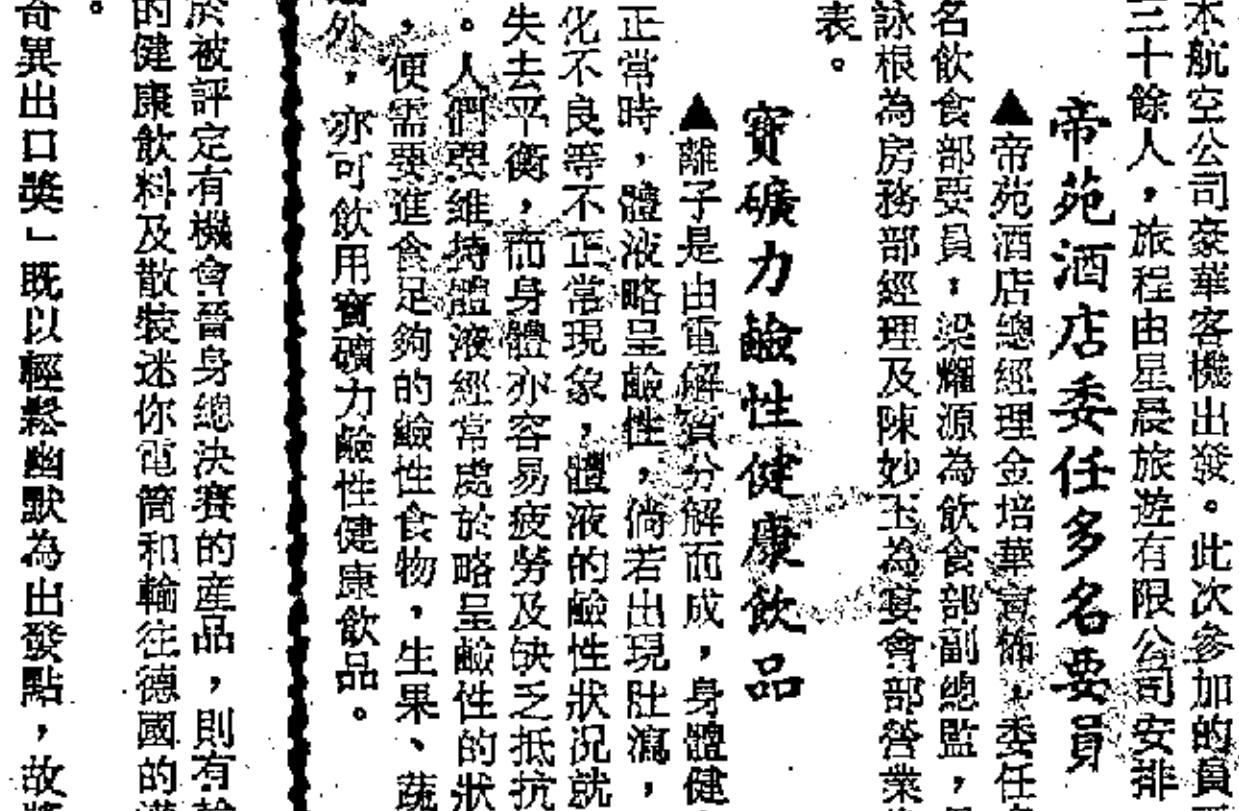 本航空公司豪華客機出發。此次參加的員
三十餘人,旅程由星晨旅遊有限公司安排
帝苑酒店委任多名要員
▲帝苑酒店總經理金培華宣佈,委任
名飲食部要員:梁耀源為飲食部副總監,
詠根為房務部經理及陳妙玉為宴會部營業
表。
寶礦力鹼性健康飲品
▲離子是由電解質分解而成,身體健
正常時,體液略呈鹼性,倘若出現肚瀉,
化不良等不正常現象,體液的鹼性狀况就
失去平衡,而身體亦容易疲勞及缺乏抵抗
。人們要維持體液經常處於略呈鹼性的狀
,便需要進食足夠的鹼性食物,生果、蔬
外,亦可飲用寶礦力鹼性健康飲品。
於被評定有機會晉身總決賽的產品,則有
的健康飲料及散裝迷你電筒和輸往德國的
。
奇異出口獎」既以輕鬆幽默為出發點,故